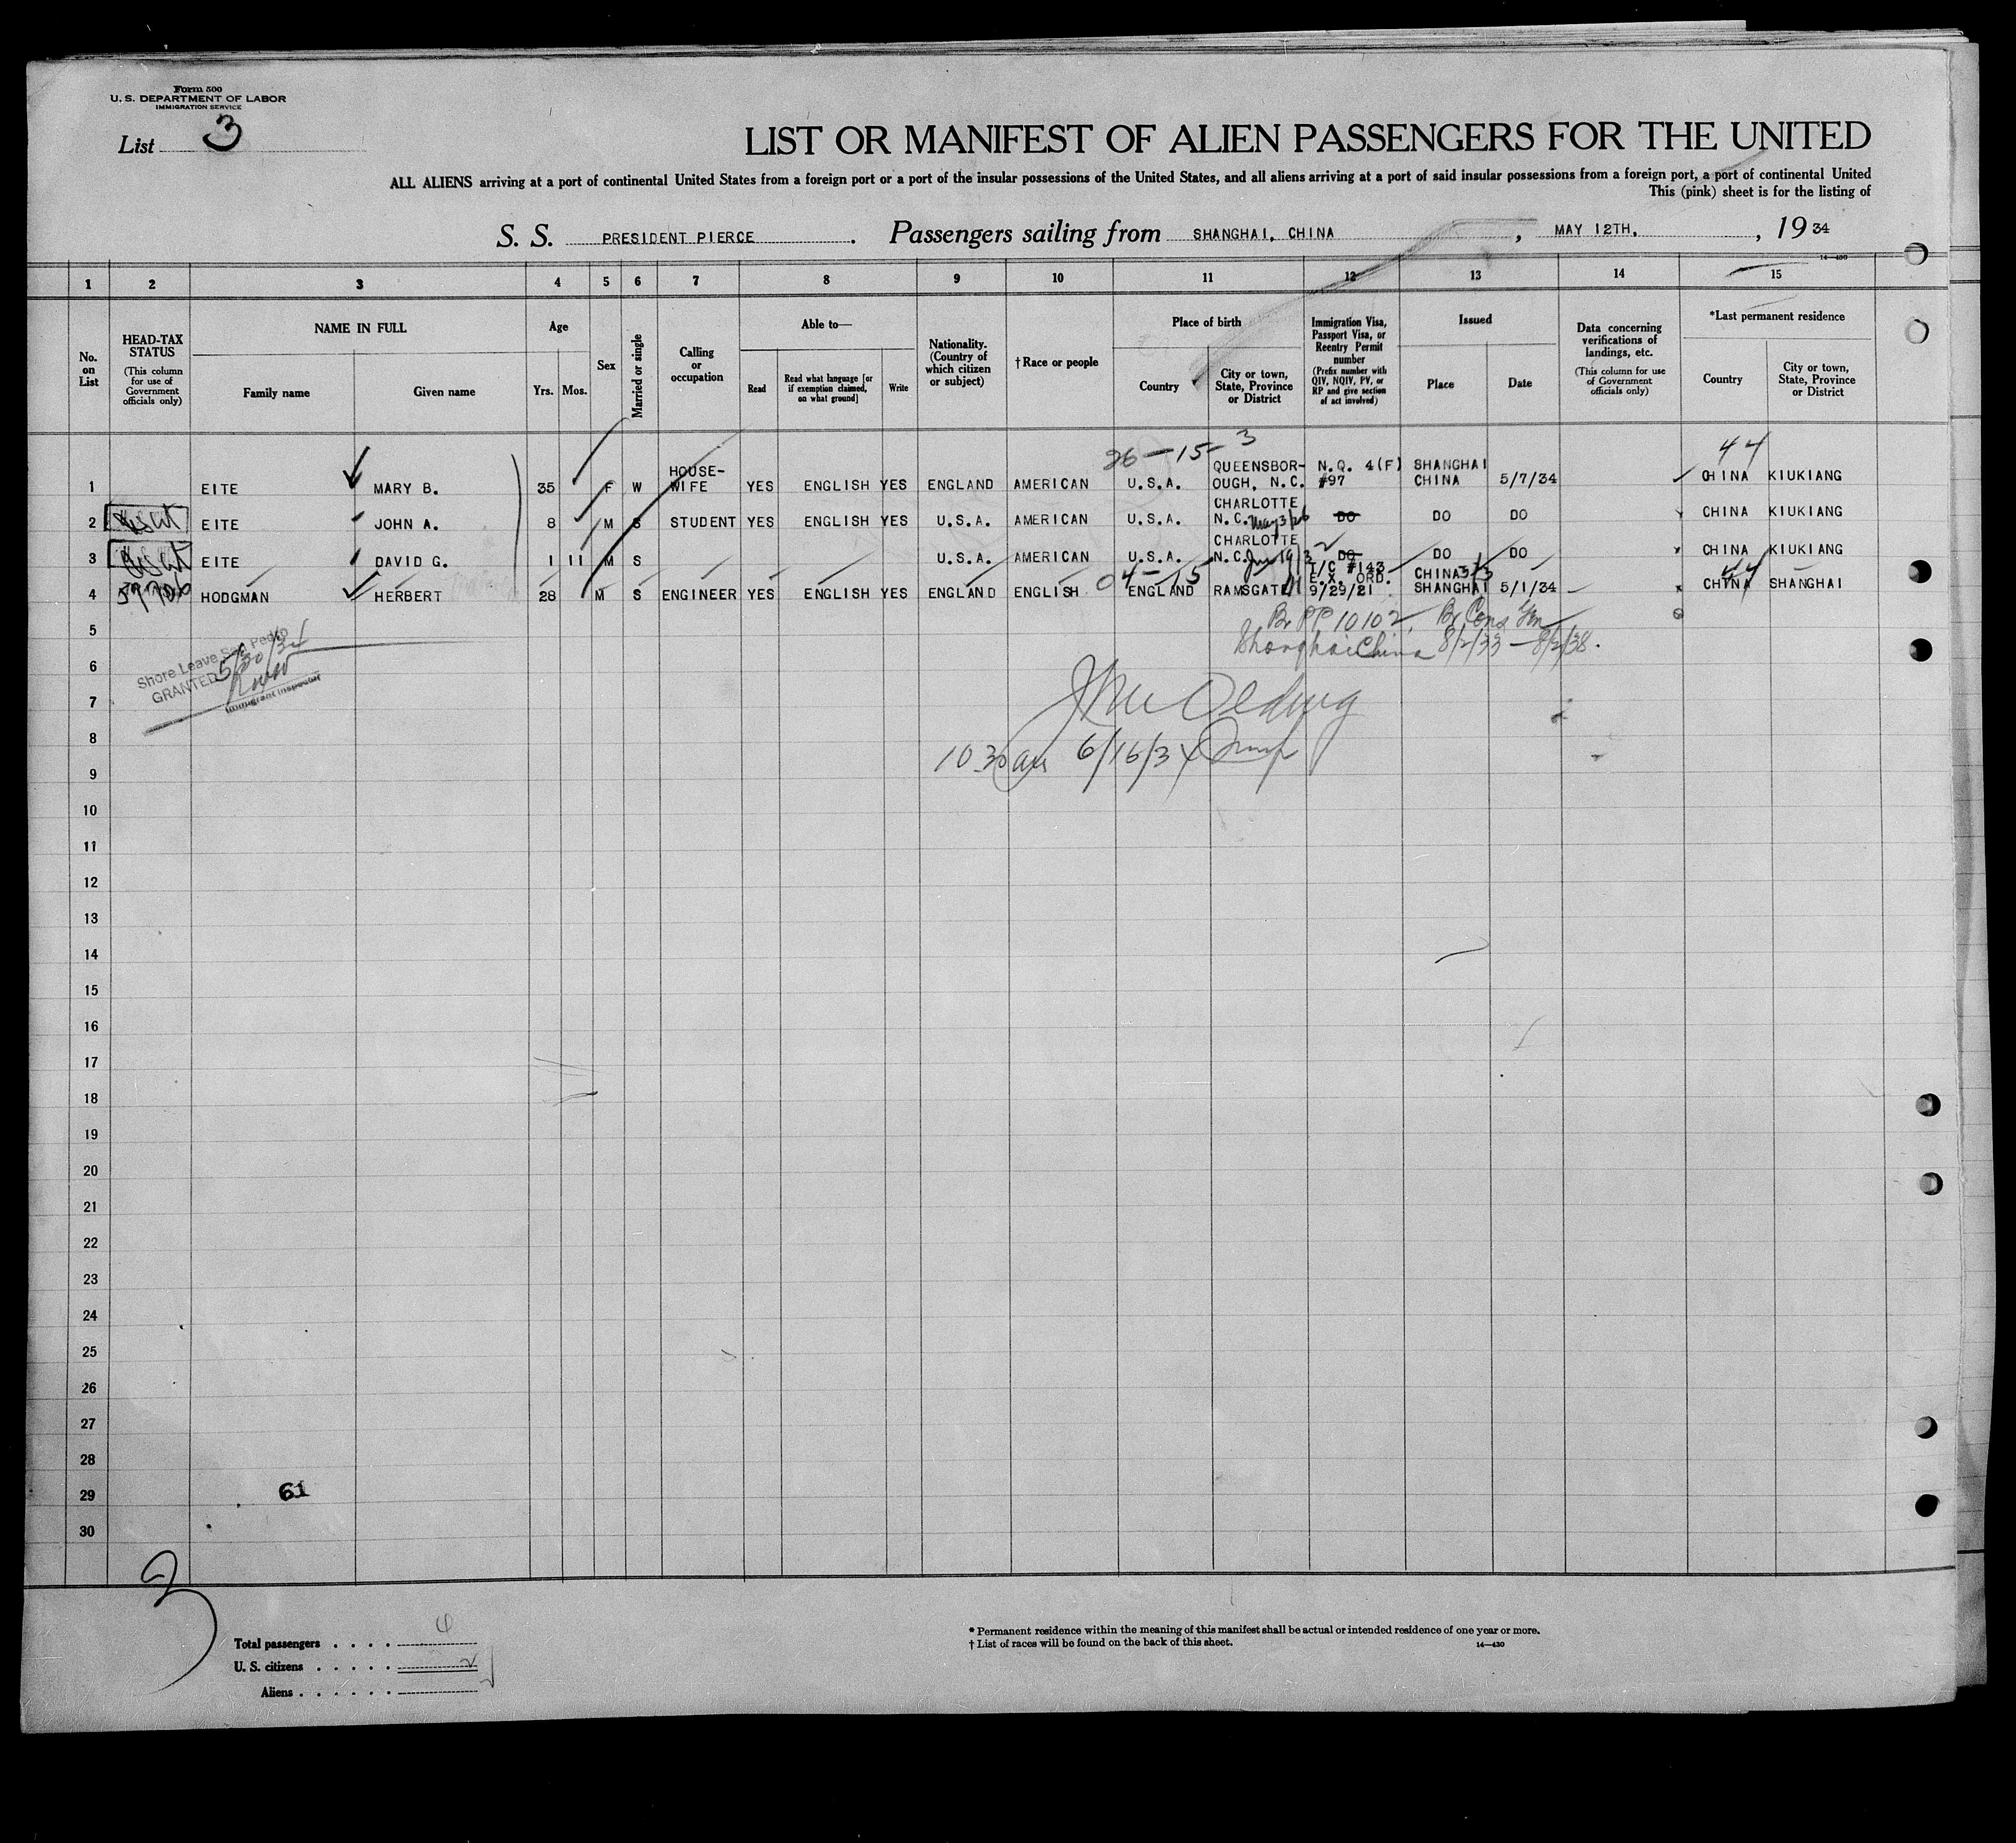 Form 500
U. S. DEPARTMENT OF LABOR
IMMIGRATION SERVICE
List 3
LIST OR MANIFEST OF ALIEN PASSENGERS FOR THE UNITED
ALL ALIENS arriving at a port of continental United States from a foreign port or a port of the insular possessions of the United States, and all aliens arriving at a port of said insular possessions from a foreign port, a port of continental United
This (pink) sheet is for the listing of
S. S. PRESIDENT PIERCE. Passengers sailing from SHANGHAI, CHINA, MAY 12TH., 19 34
14—430
1 2 3 4 5 6 7 8 9 10 11 12 13 14 15
No. on List
HEAD-TAX STATUS
(This column for use of Government officials only)
NAME IN FULL
Family name
Given name
Age
Yrs. Mos.
Sex
Married or single
Calling or occupation
Able to—
Read
Read what language [or if exemption claimed, on what ground]
Write
Nationality. (Country of which citizen or subject)
†Race or people
Place of birth
Country
City or town, State, Province or District
Immigration Visa, Passport Visa, or Reentry Permit number
(Prefix number with QIV, NQIV, PV, or RP and give section of act involved)
Issued
Place
Date
Data concerning verifications of landings, etc.
(This column for use of Government officials only)
*Last permanent residence
Country
City or town, State, Province or District
26—15—3
44
1 EITE MARY B. 35 F W HOUSE-WIFE YES ENGLISH YES ENGLAND AMERICAN U.S.A. QUEENSBOR-OUGH, N.C. N.Q. 4(F) #97 SHANGHAI CHINA 5/7/34 CHINA KIUKIANG
2 EITE JOHN A. 8 M S STUDENT YES ENGLISH YES U.S.A. AMERICAN U.S.A. CHARLOTTE N.C. May 3/26 DO DO DO CHINA KIUKIANG
3 EITE DAVID G. 1 11 M S U.S.A. AMERICAN U.S.A. CHARLOTTE N.C. DO DO DO CHINA KIUKIANG
04—15
44
4 HODGMAN HERBERT 28 M S ENGINEER YES ENGLISH YES ENGLAND ENGLISH ENGLAND RAMSGATE T/C #143 E.X. ORD. 9/29/21 CHINA SHANGHAI 5/1/34 CHINA SHANGHAI
Br PP 10102, Br Cons Gen
Shanghai China 8/2/33 — 8/2/38.
5
Shore Leave San Pedro
GRANTED 5/30/34
Immigrant Inspector
6
7
8
10 30 am 6/16/34
9
10
11
12
13
14
15
16
17
18
19
20
21
22
23
24
25
26
27
28
29
61
30
3
Total passengers . . . . 4
U. S. citizens . . . . . 2
Aliens . . . . . .
* Permanent residence within the meaning of this manifest shall be actual or intended residence of one year or more.
† List of races will be found on the back of this sheet.
14—430